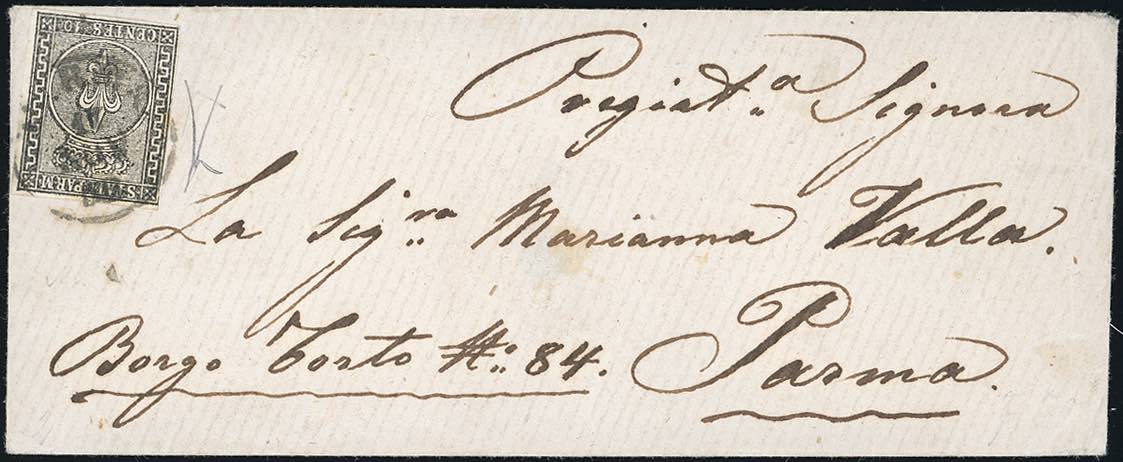 CENTES. 10
STATI PARM.
Pregiat.a Signora
La Sig.ra Marianna Valla.
Borgo Torto N.o 84. Parma.